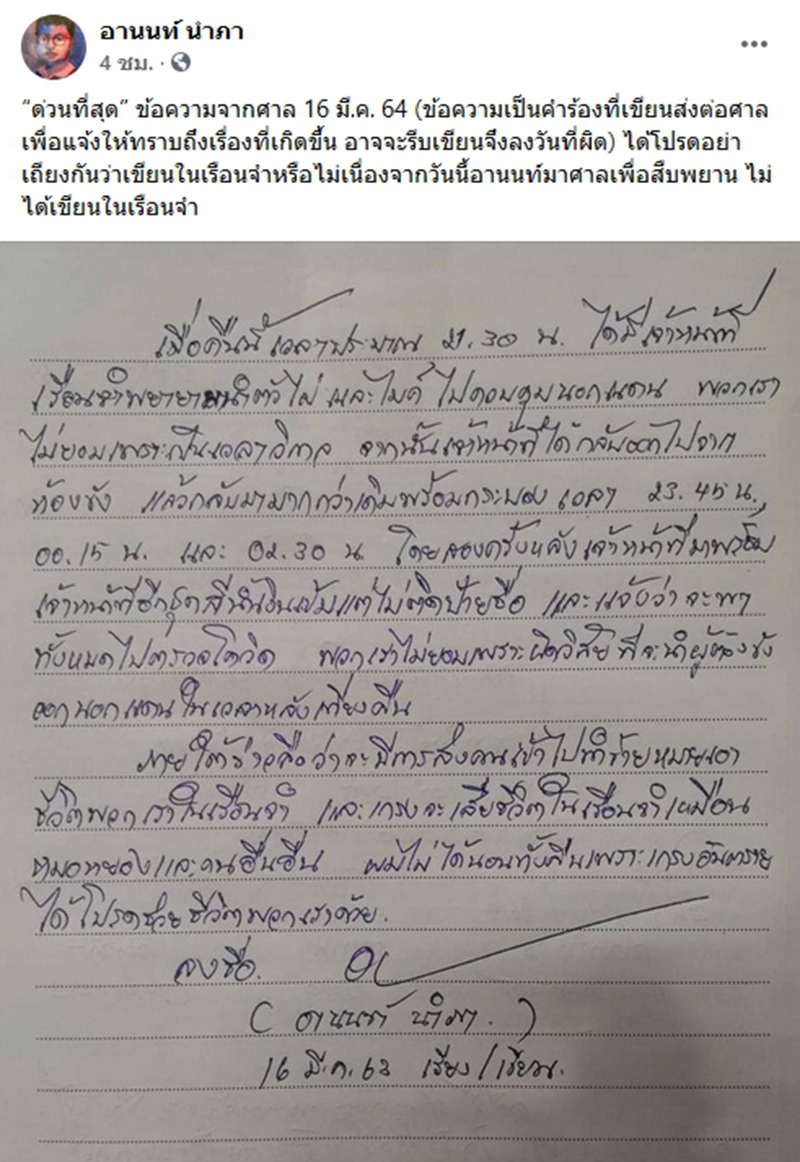 อานนท์ นำภา
4 ชม.
“ด่วนที่สุด” ข้อความจากศาล 16 มี.ค. 64 (ข้อความเป็นคำร้องที่เขียนส่งต่อศาล
เพื่อแจ้งให้ทราบถึงเรื่องที่เกิดขึ้น อาจจะรีบเขียนจึงลงวันที่ผิด) ได้โปรดอย่า
เถียงกันว่าเขียนในเรือนจำหรือไม่เนื่องจากวันนี้อานนท์มาศาลเพื่อสืบพยาน ไม่
ได้เขียนในเรือนจำ
เมื่อคืนนี้ เวลาประมาณ 21.30 น. ได้มีเจ้าหน้าที่
เรือนจำพยายามนำตัวไผ่ และไมค์ ไปควบคุมนอกแดน พวกเรา
ไม่ยอมเพราะเป็นเวลาวิกาล จากนั้นเจ้าหน้าที่ได้กลับออกไปจาก
ห้องขัง แล้วกลับมามากกว่าเดิมพร้อมกระบอง เวลา 23.45 น.,
00.15 น. และ 02.30 น. โดยสองครั้งหลังเจ้าหน้าที่มาพร้อม
เจ้าหน้าที่อีกชุดสีน้ำเงินเข้มแต่ไม่ติดป้ายชื่อ และแจ้งว่าจะพา
ทั้งหมดไปตรวจโควิด พวกเราไม่ยอมเพราะผิดวิสัยที่จะนำผู้ต้องขัง
ออกนอกแดนในเวลาหลังเที่ยงคืน
ภายใต้ข่าวลือว่าจะมีการส่งคนเข้าไปทำร้ายหมายเอา
ชีวิตพวกเราในเรือนจำ และเกรงจะเสียชีวิตในเรือนจำเหมือน
หมอหยองและคนอื่นอื่น ผมไม่ได้นอนทั้งคืนเพราะเกรงอันตราย
ได้โปรดช่วยชีวิตพวกเราด้วย.
ลงชื่อ.
( อานนท์ นำภา. )
16 มี.ค. 63 เรียง/เขียน.